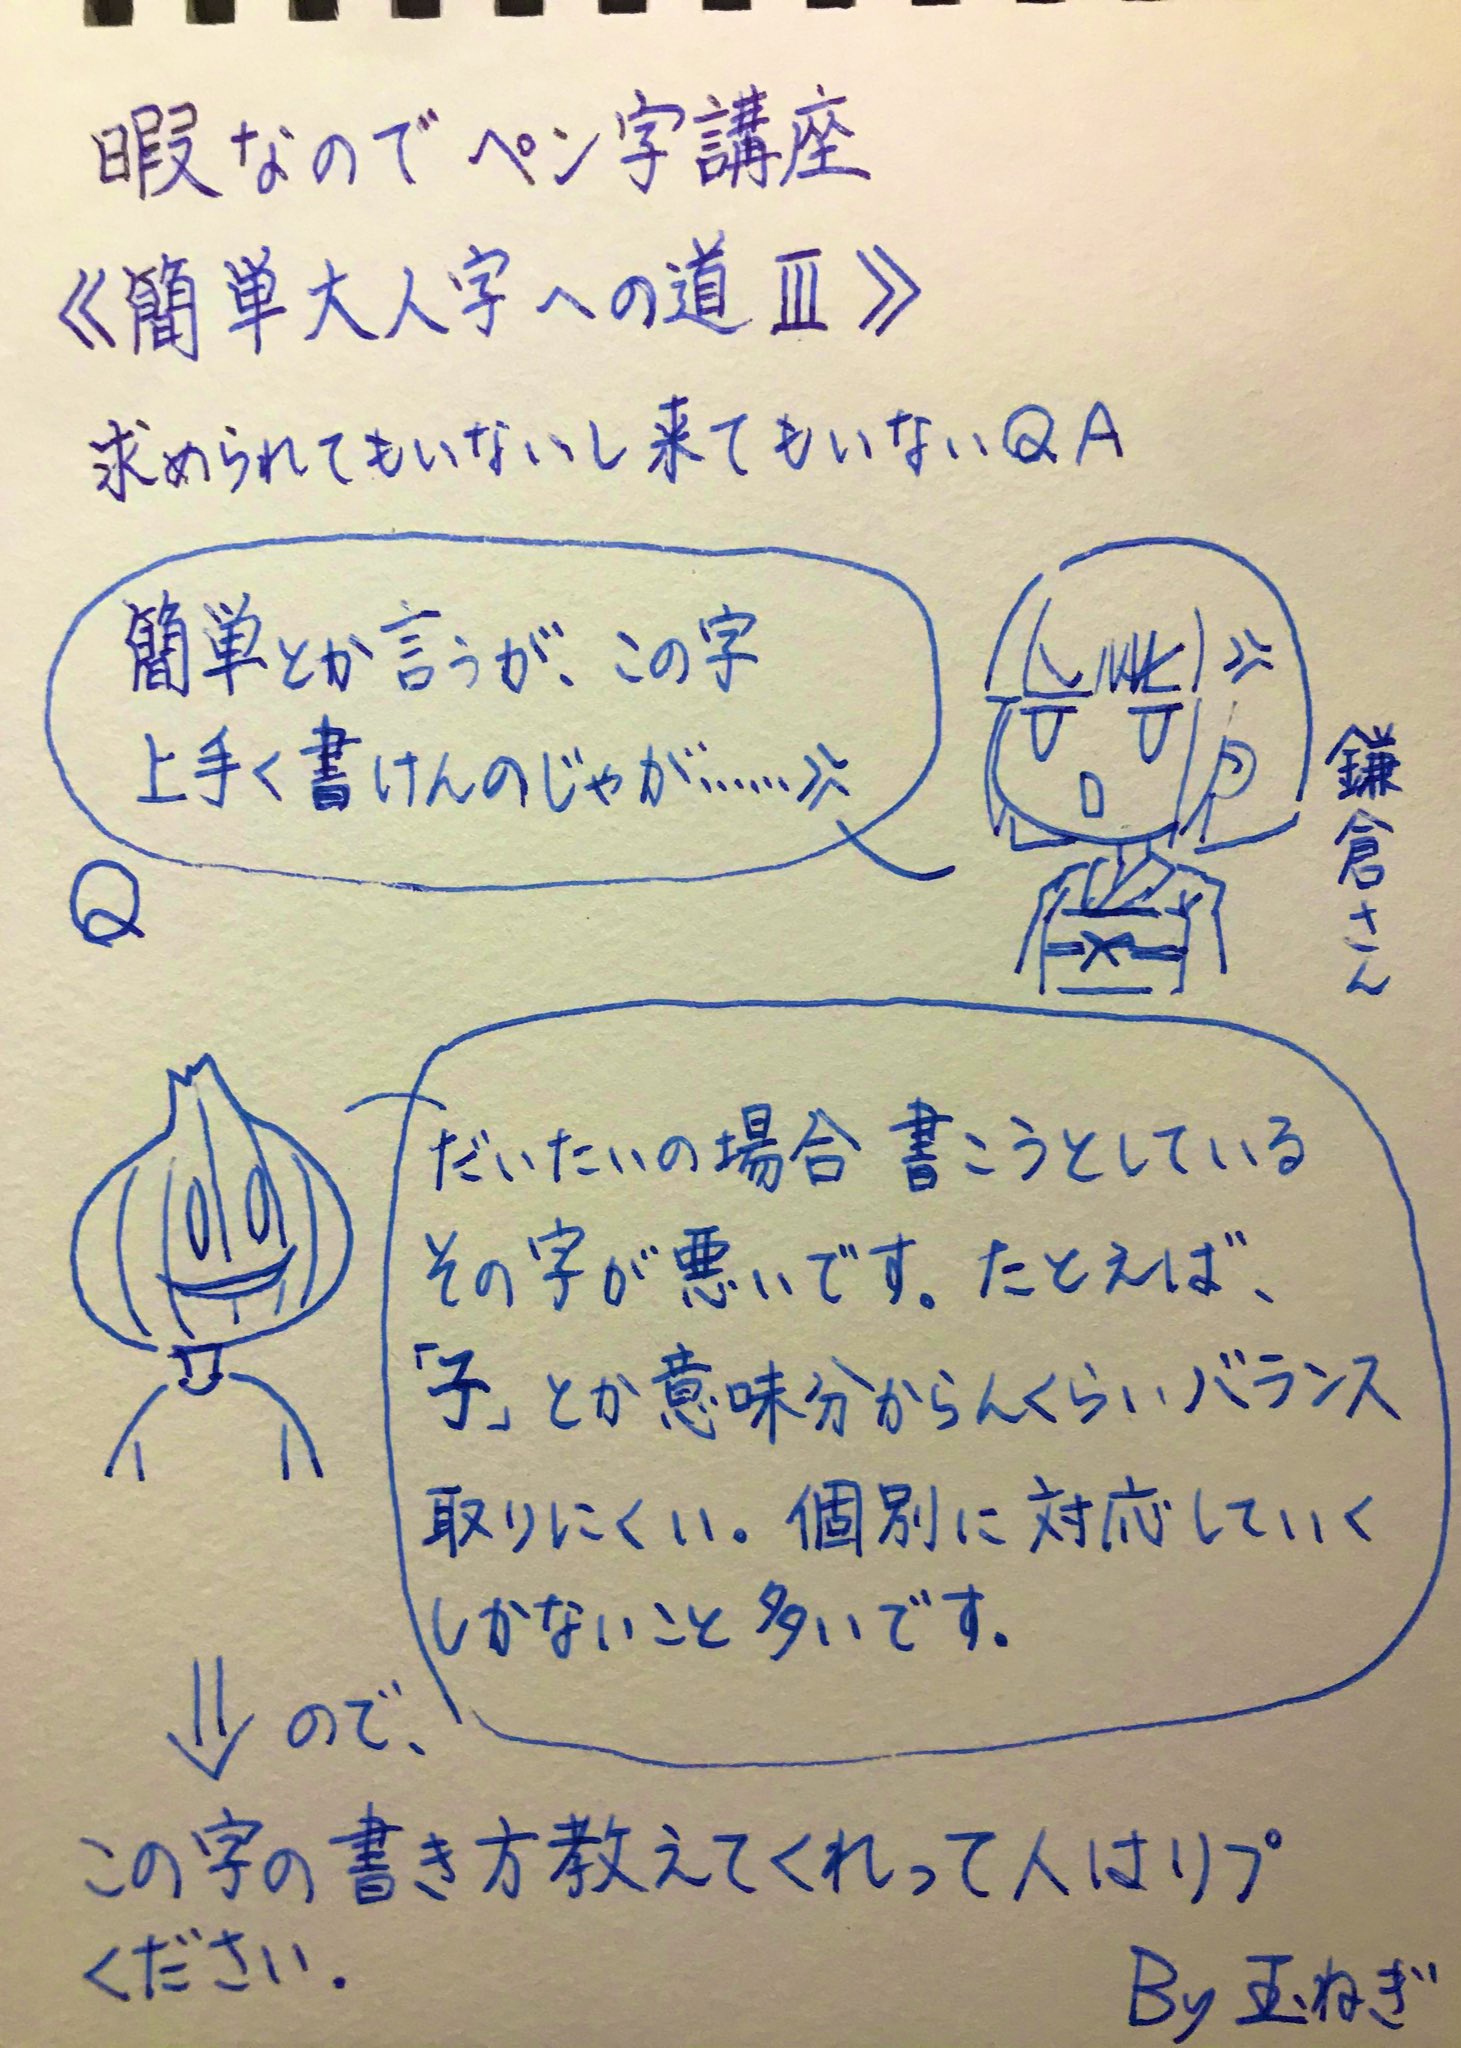 暇なのでペン字講座
《簡単大人字への道Ⅲ》
求められてもいないし来てもいないQA
簡単とか言うが、この字
上手く書けんのじゃが……
Q
鎌倉さん
だいたいの場合書こうとしている
その字が悪いです。たとえば、
「子」とか意味分からんくらいバランス
取りにくい。個別に対応していく
しかないこと多いです。
ので、
この字の書き方教えてくれって人はリプ
ください.
By玉ねぎ